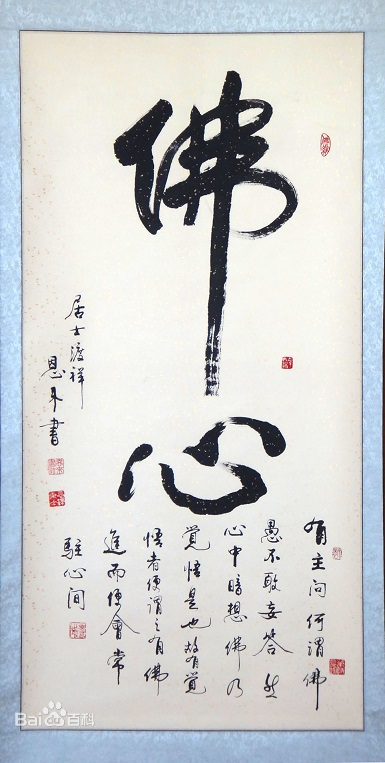 佛心
有主问何謂佛
愚不敢妄答然
心中暗想佛乃
覺悟是也故有覺
悟者便謂之有佛
進而便會常
駐心间
居士渡祥
恩年書
Bai百科